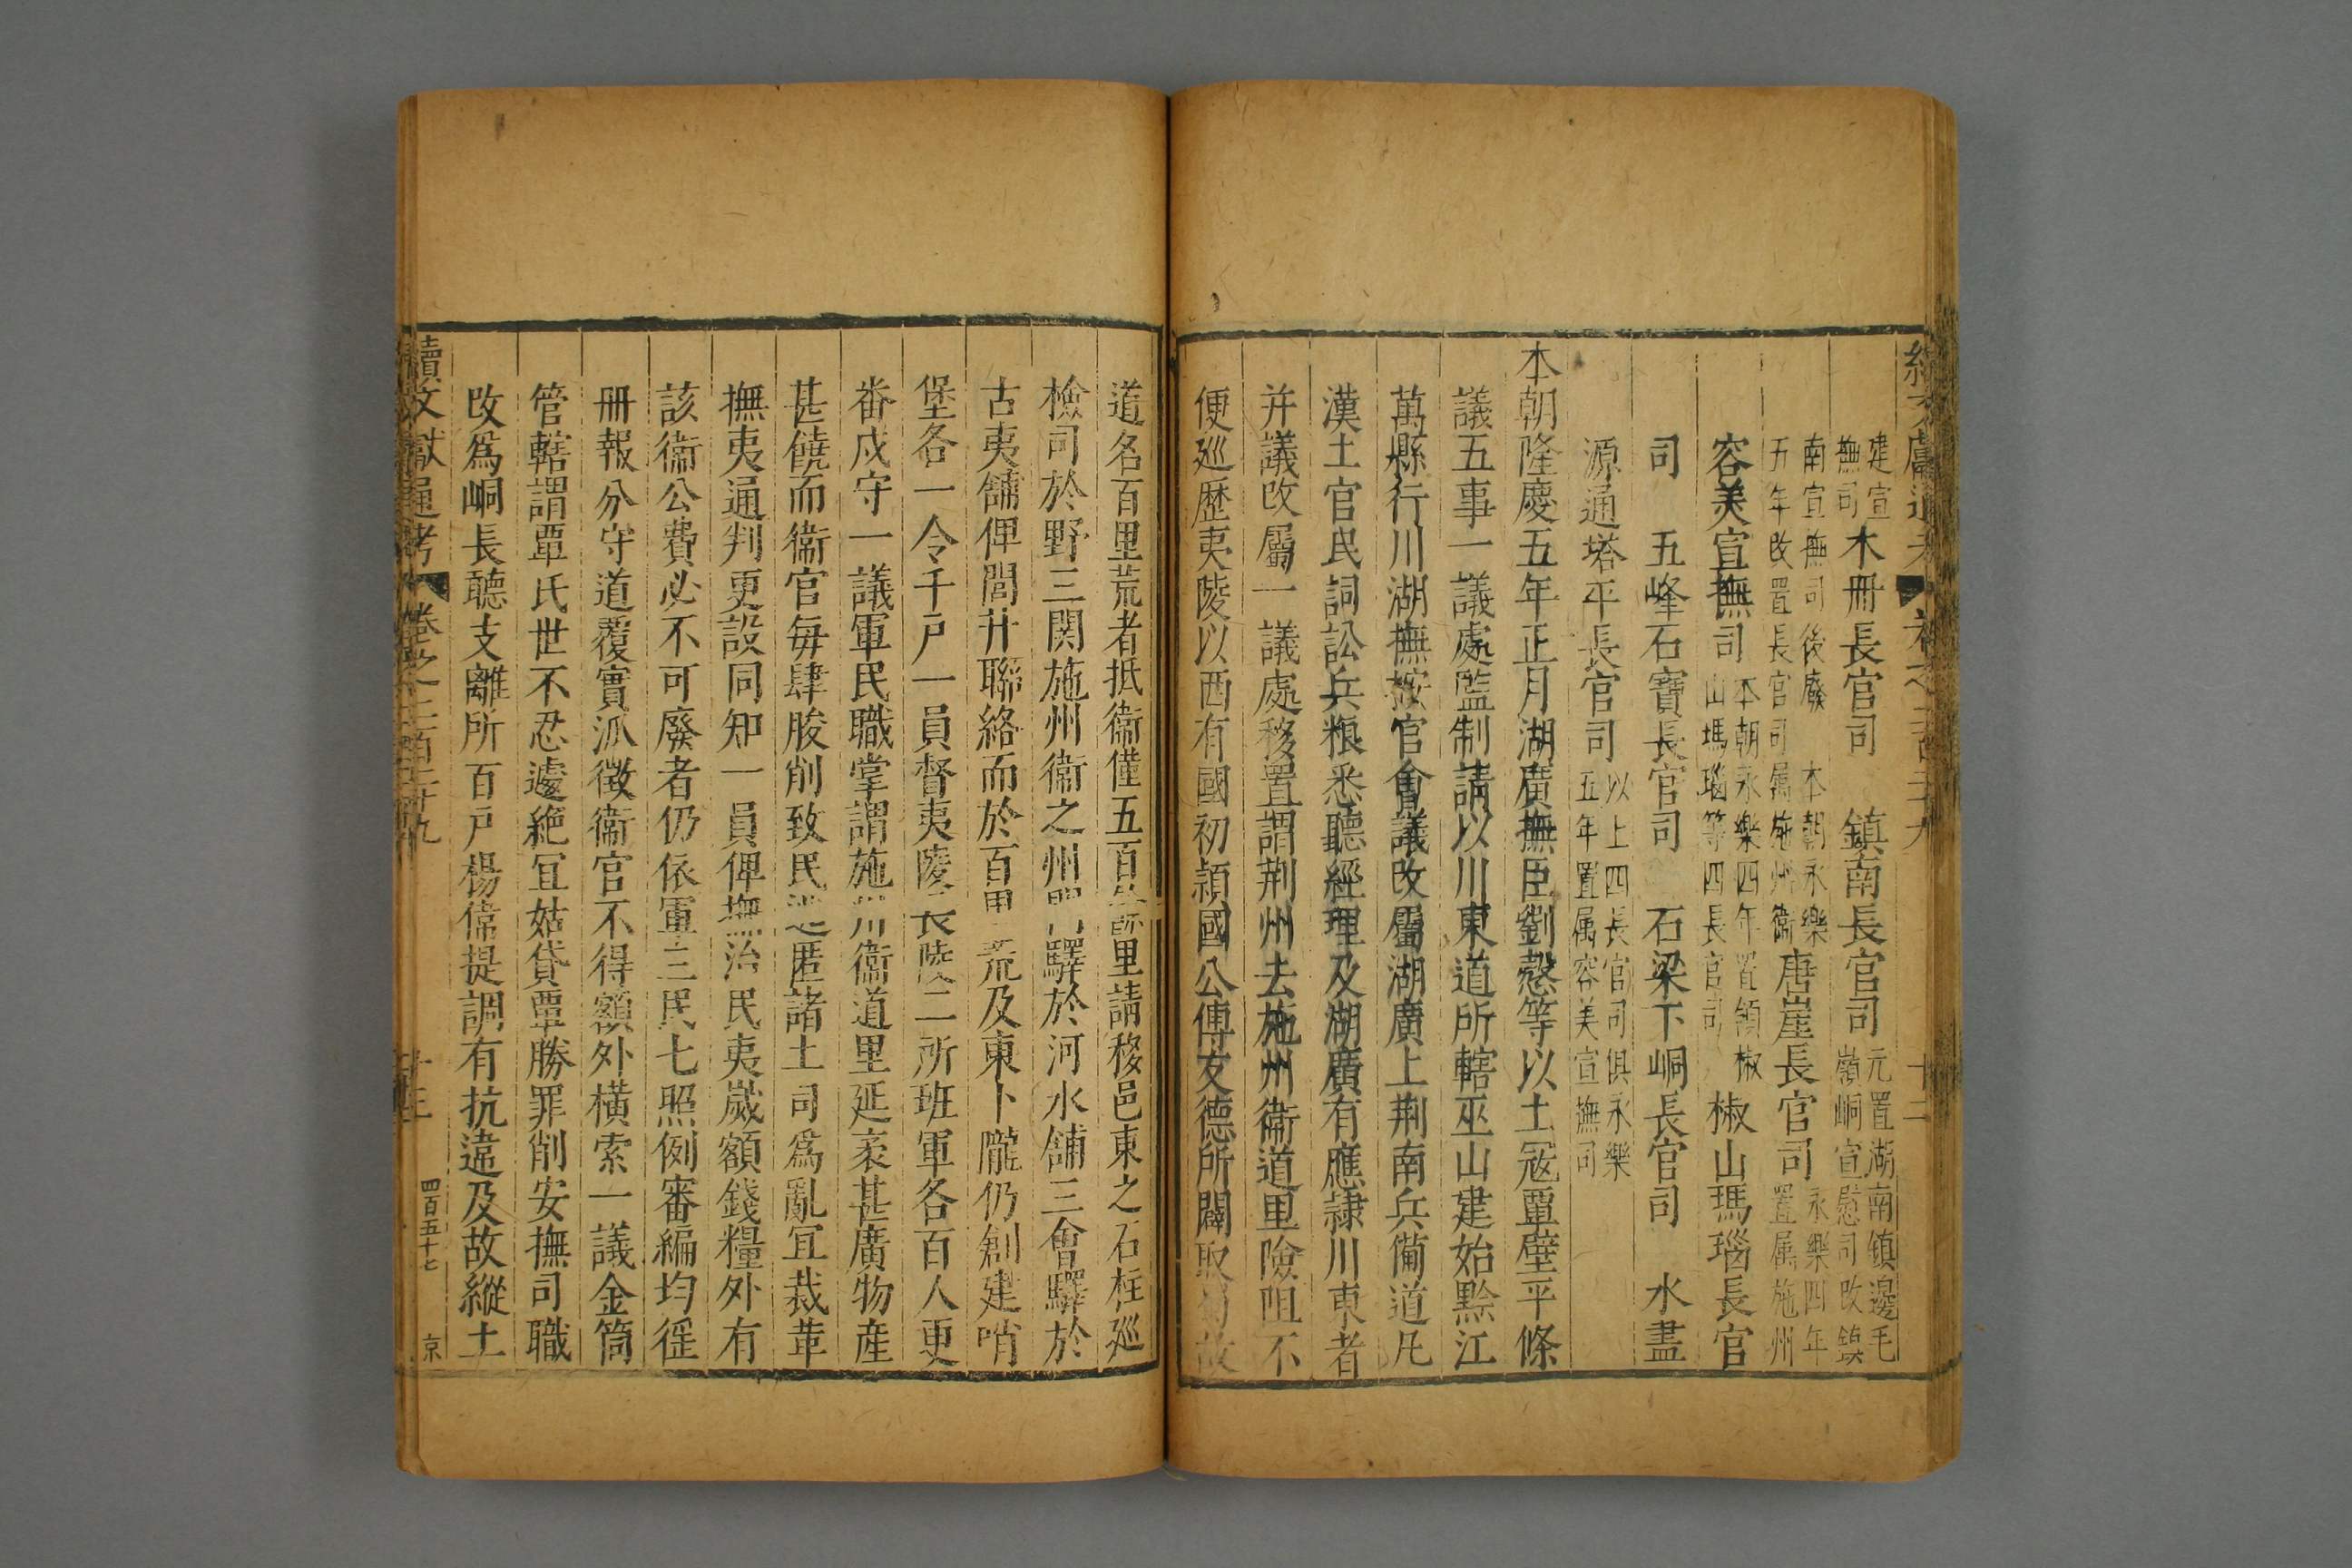 建宣撫司木册長官司　鎮南長官司元置湖南鎮邊毛嶺峒宣慰司改鎮
南宣撫司後廢　本朝永樂五年改置長官司属施州衛唐崖長官司永樂四年置属施州
容美宣撫司本朝永樂四年置領椒山瑪瑙等四長官司椒山瑪瑙長官
司　五峰石寶長官司　石梁下峒長官司　水盡
源通塔平長官司以上四長官司俱永樂五年置属容美宣撫司
本朝隆慶五年正月湖廣撫臣劉慤等以土冦覃壁平條
議五事一議處監制請以川東道所轄巫山建始黔江
萬縣行川湖撫按官會議改屬湖廣上荆南兵備道凡
漢土官民詞訟兵粮悉聽經理及湖廣有應隷川東者
并議改屬一議處移置謂荆州去施州衛道里險阻不
便廵歷夷陵以西有國初頴國公傅友德所闢取蜀故
道名百里荒者抵衛僅五百餘里請移邑東之石柱廵
檢司於野三関施州衛之州門驛於河水舖三會驛於
古夷舖俾閭井聯絡而於百里荒及東卜隴仍創建哨
堡各一令千戸一員督夷陵長陵二所班軍各百人更
番戍守一議軍民職掌謂施州衛道里延袤甚廣物産
甚饒而衛官毎肆朘削致民逃匿諸土司爲亂宜裁革
撫夷通判更設同知一員俾撫治民夷嵗額錢糧外有
該衛公費必不可廢者仍依軍三民七照例審編均徭
册報分守道覆實派徴衛官不得額外橫索一議金筒
管轄謂覃氏世不忍遽絶宜姑貸覃勝罪削安撫司職
改爲峒長聽支離所百戸楊偉提調有抗違及故縱土
續文獻通考　卷之二百三十九　十三　四百五十七　京